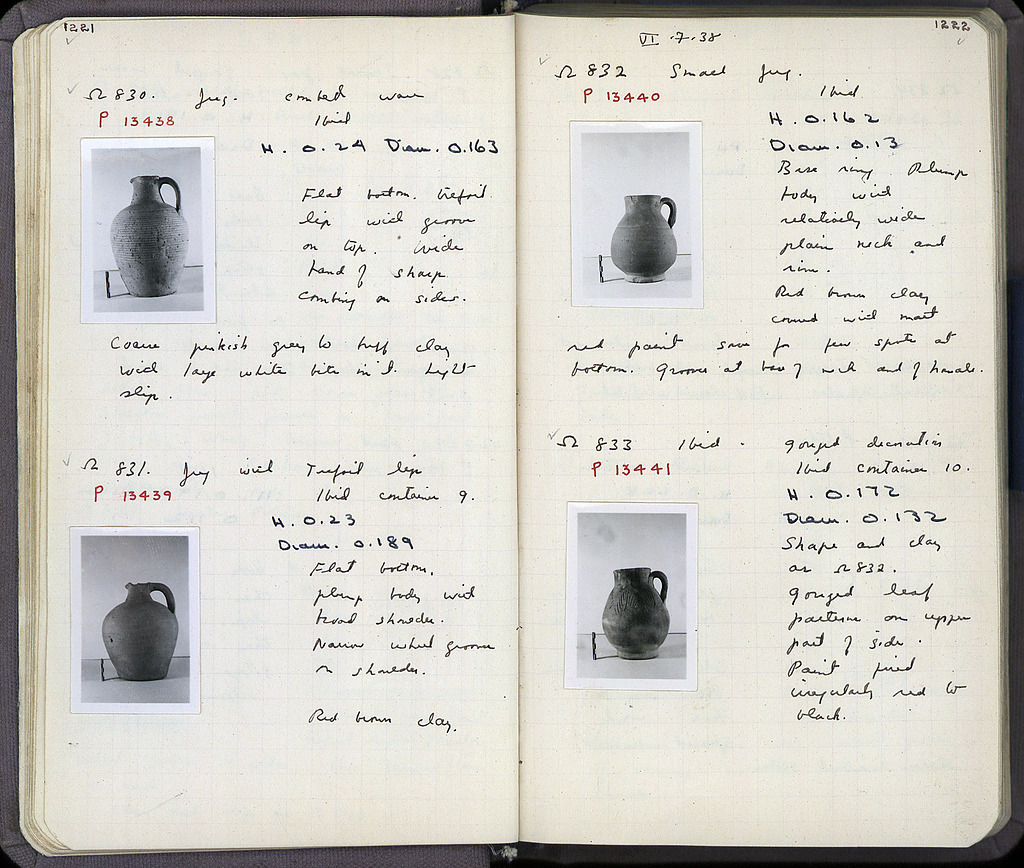 1221
Ω 830. Jug. combed ware
P 13438 Ibid
H. 0.24 Diam. 0.163
Flat bottom. trefoil
lip with groove
on top. Wide
band of sharp
combing on sides.
Coarse pinkish grey to buff clay
with large white bits in it. Light
slip.
Ω 831. Jug with Trefoil lip
P 13439 Ibid container 9.
H. 0.23
Diam. 0.189
Flat bottom.
plump body with
broad shoulder.
Narrow wheel groove
on shoulder.
Red brown clay.
1222
VI .7.38
Ω 832 Small jug.
P 13440 Ibid
H. 0.162
Diam. 0.13
Base ring. Plump
body with
relatively wide
plain neck and
rim.
Red brown clay
covered with matt
red paint save for few spots at
bottom. Groove at base of neck and of handle.
Ω 833 Ibid - gouged decoration
P 13441 Ibid container 10.
H. 0.172
Diam. 0.132
Shape and clay
as Ω 832.
gouged leaf
pattern on upper
part of side.
Paint fired
irregularly red to
black.